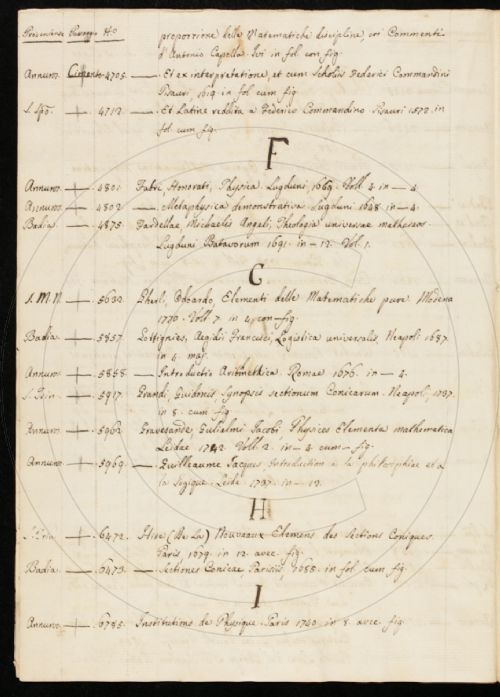 Provenienze Passaggio No
proporzione delle Matematiche discipline coi Commenti
d'Antonio Capella. Ivi in fol con fig.
Annunz. 4705. — Et ex interpretatione, et cum Scholiis Federici Commandini
Pisauri, 1619 in fol cum fig
S. Spo. + 4712. — Et Latine reddita a Federico Commandino Pisauri 1572. in
fol. cum fig.
F
Annunz. + 4801. Fabri, Honorati, Physica. Lugduni, 1669. Voll. 4. in — 4.
Annunz. + 4802. — Metaphysica demonstrativa. Lugduni 1648. in — 4.
Badia. + 4875. Fardellae, Michaelis Angeli, Theologia universae matheseos
Lugduni Batavorum 1691. in — 12. Vol. 1.
G
S. M. N. — 5632. Gherli, Odoardo, Elementi delle Matematiche pure. Modena
1770. Voll. 7. in 4. con — fig.
Badia. + 5857. Gottignies, Aegidii Francisci, Logistica universalis. Neapoli 1687.
in 4. maj.
Annunz. + 5858. — Introductio Arithmetica. Romae 1676. in — 4.
S. Trin. + 5917. Grandi, Guidonis, Synopsis sectionum Conicarum. Neapoli, 1737.
in 8. cum fig
Annunz. + 5962. Gravesande Gulielmi Jacobi Physices Elementa mathematica
Leidae 1742. Voll. 2. in — 4. cum — fig.
Annunz. + 5969. — Guilleaume Jacques, Introduction à la philosophiae et a
la logique. Leide. 1737. in — 12.
H
S. Trin + 6472. Hire (De La) Nouveaux Elemens des Sections Coniques.
Paris, 1679. in 12. avec. fig.
Badia. + 6473. — Sectiones Conicae Parisiis, 1685. in fol cum fig.
I
Annunz. + 6785. Institutions de Physique. Paris 1740. in 8. avec. fig.